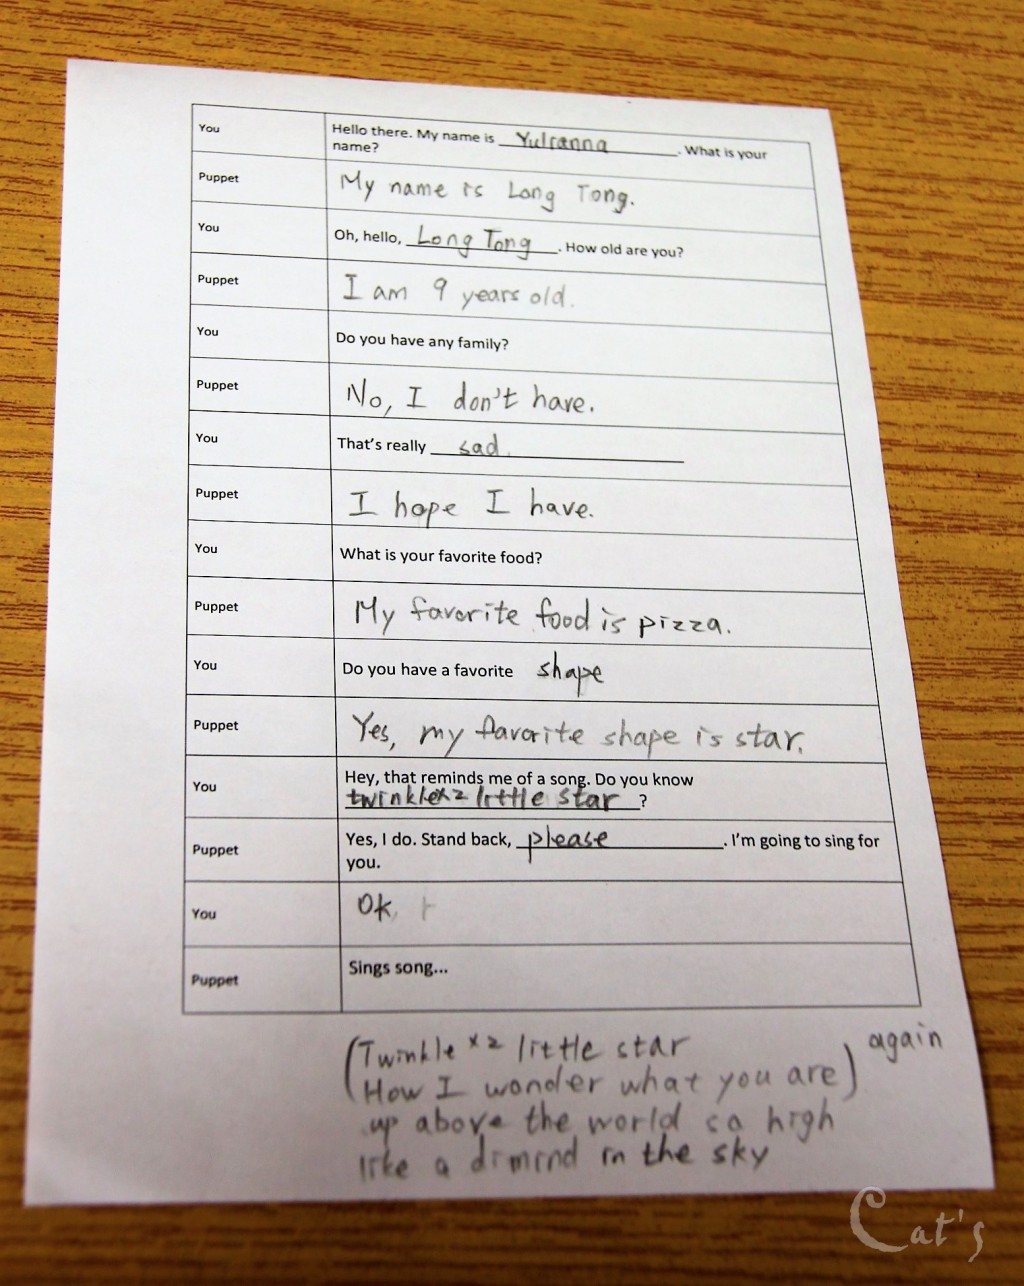 You
Hello there. My name is Yulianna. What is your
name?
Puppet
My name is Long Tong.
You
Oh, hello, Long Tong. How old are you?
Puppet
I am 9 years old.
You
Do you have any family?
Puppet
No, I don't have.
You
That's really sad.
Puppet
I hope I have.
You
What is your favorite food?
Puppet
My favorite food is pizza.
You
Do you have a favorite shape
Puppet
Yes, my favorite shape is star.
You
Hey, that reminds me of a song. Do you know
twinkle x2 little star?
Puppet
Yes, I do. Stand back, please. I'm going to sing for
you.
You
Ok,
Puppet
Sings song...
(Twinkle x2 little star
How I wonder what you are) again
up above the world so high
like a dimind in the sky
Cat's